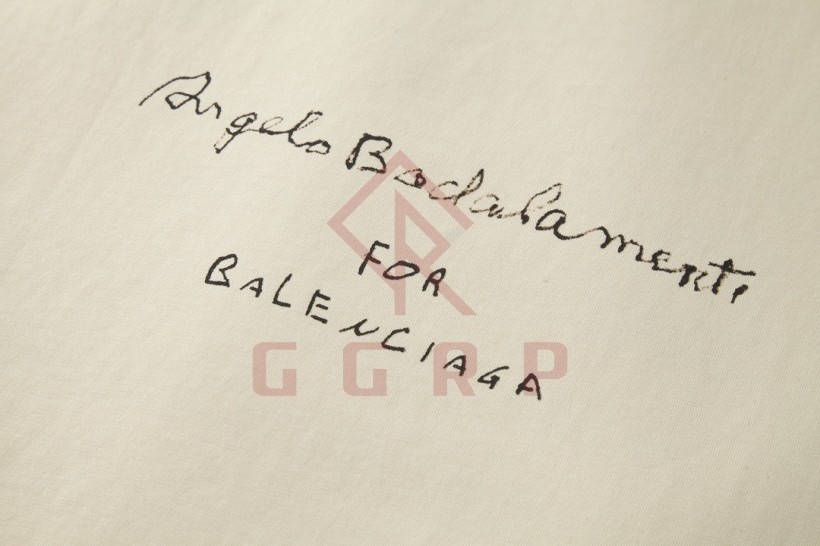 Angelo Badalamenti
FOR
BALENCIAGA
GGRP